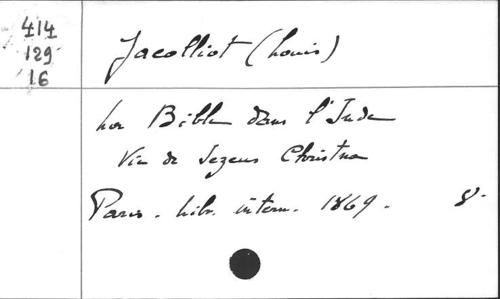 414
129
16
Jacolliot (Louis)
La Bible dans l'Inde
Vie de Jezeus Christna
Paris. Libr. intern. 1869. 8°